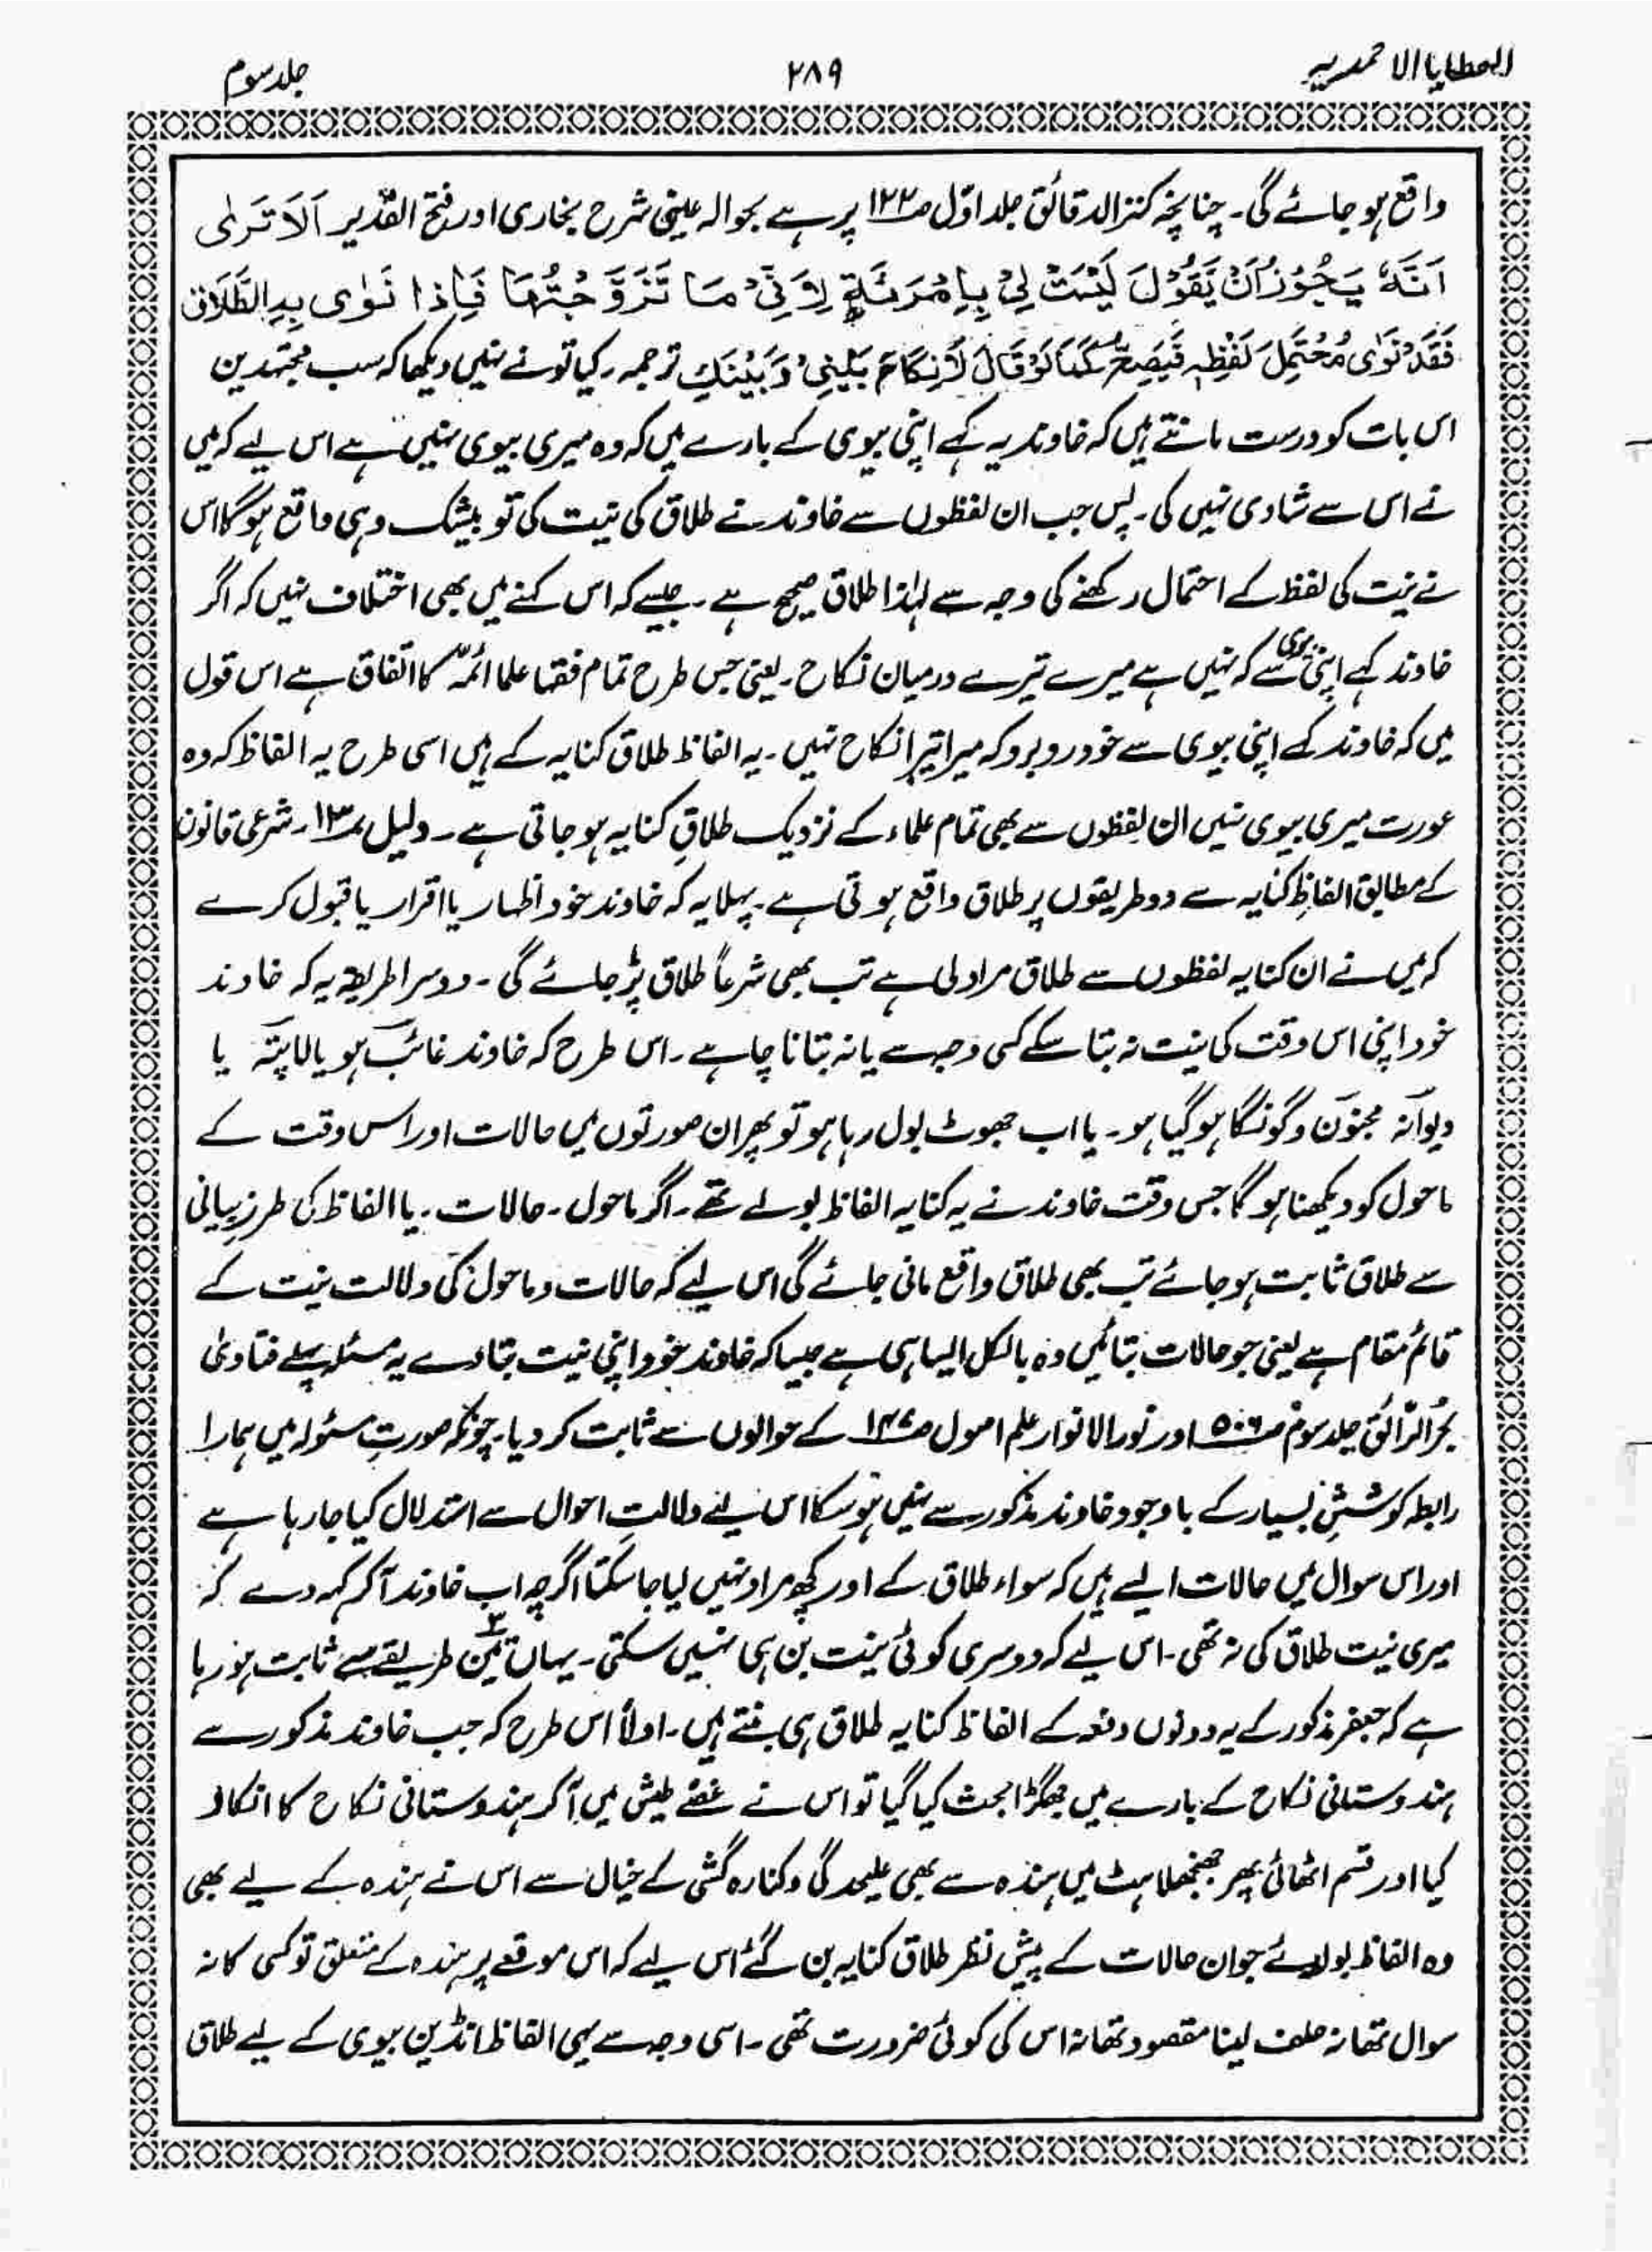 العطایا الاحمدیہ ۲۸۹ جلد سوم
واقع ہو جائے گی۔ چنانچہ کنز الدقائق جلد اوّل صـ۱۲۲ پر ہے بحوالہ عینی شرح بخاری اور فتح القدیر اَلَا تَرَىٰ
اَنَّهٗ یَجُوْزُ اَنْ یَّقُوْلَ لَیْسَتْ لِیْ بِاِمْرَئَةٍ لِاَنِّیْ مَا تَزَوَّجْتُهَا فَاِذَا نَوٰی بِهِ الطَّلَاقَ
فَقَدْ نَوٰی مُحْتَمِلَ لَفْظِهٖ فَیَصِحُّ کَمَا لَوْ قَالَ لَا نِکَاحَ بَیْنِیْ وَبَیْنَكِ ترجمہ۔ کیا تو نے نہیں دیکھا کہ سب مجتہدین
اس بات کو درست مانتے ہیں کہ خاوند یہ کہے اپنی بیوی کے بارے میں کہ وہ میری بیوی نہیں ہے اس لیے کہ میں
نے اس سے شادی نہیں کی۔ پس جب ان لفظوں سے خاوند نے طلاق کی نیت کی تو بیشک وہی واقع ہوگا اس
نے نیت کی لفظ کے احتمال رکھنے کی وجہ سے لہٰذا طلاق صحیح ہے۔ جیسے کہ اس کہنے میں بھی اختلاف نہیں کہ اگر
خاوند کہے اپنی بیوی سے کہ نہیں ہے میرے تیرے درمیان نکاح۔ یعنی جس طرح تمام فقہا علما ائمہ کا اتفاق ہے اس قول
میں کہ خاوند کہے اپنی بیوی سے خود روبرو کہ میرا تیرا نکاح نہیں۔ یہ الفاظ طلاق کنایہ کے ہیں اسی طرح یہ الفاظ کہ وہ
عورت میری بیوی نہیں ان لفظوں سے بھی تمام علماء کے نزدیک طلاقِ کنایہ ہو جاتی ہے۔ دلیل نمبر ۱۳۔ شرعی قانون
کے مطابق الفاظِ کنایہ سے دو طریقوں پر طلاق واقع ہوتی ہے۔ پہلا یہ کہ خاوند خود اظہار یا اقرار یا قبول کرے
کہ میں نے ان کنایہ لفظوں سے طلاق مراد لی ہے تب بھی شرعاً طلاق پڑ جائے گی۔ دوسرا طریقہ یہ کہ خاوند
خود اپنی اس وقت کی نیت نہ بتا سکے کسی وجہ سے یا نہ بتانا چاہے۔ اس طرح کہ خاوند غائب ہو یا لاپتہ یا
دیوانہ مجنون و گونگا ہو گیا ہو۔ یا اب جھوٹ بول رہا ہو تو پھر ان صورتوں میں حالات اور اس وقت کے
ماحول کو دیکھنا ہوگا جس وقت خاوند نے یہ کنایہ الفاظ بولے تھے۔ اگر ماحول۔ حالات۔ یا الفاظ کی طرزِ بیانی
سے طلاق ثابت ہو جائے تب بھی طلاق واقع مانی جائے گی اس لیے کہ حالات و ماحول کی دلالت نیت کے
قائم مقام ہے یعنی جو حالات بتائیں وہ بالکل ایسا ہی ہے جیسا کہ خاوند خود اپنی نیت بتا دے یہ مسئلہ پہلے فتاویٰ
بحر الرّائق جلد سوم صـ۵۰۶ اور نور الانوار علم اصول صـ۱۴۷ کے حوالوں سے ثابت کر دیا۔ چونکہ صورتِ مسئولہ میں ہمارا
رابطہ کوششِ بسیار کے باوجود خاوند مذکور سے نہیں ہو سکا اس لیے دلالتِ احوال سے استدلال کیا جا رہا ہے
اور اس سوال میں حالات ایسے ہیں کہ سواء طلاق کے اور کچھ مراد نہیں لیا جا سکتا اگرچہ اب خاوند آ کر کہہ دے کہ
میری نیت طلاق کی نہ تھی۔ اس لیے کہ دوسری کوئی نیت بن ہی نہیں سکتی۔ یہاں تین۳ طریقے سے ثابت ہو رہا
ہے کہ جعفر مذکور کے یہ دونوں دفعہ کے الفاظ کنایہ طلاق ہی بنتے ہیں۔ اولاً اس طرح کہ جب خاوند مذکور سے
ہندوستانی نکاح کے بارے میں جھگڑا بحث کیا گیا تو اس نے غصّے طیش میں آ کر ہندوستانی نکاح کا انکار
کیا اور قسم اٹھائی پھر جھنجھلاہٹ میں ہندہ سے بھی علیحدگی و کنارہ کشی کے خیال سے اس نے ہندہ کے لیے بھی
وہ الفاظ بولدیئے جو ان حالات کے پیش نظر طلاق کنایہ بن گئے اس لیے کہ اس موقعے پر ہندہ کے متعلق تو کسی کا نہ
سوال تھا نہ حلف لینا مقصود تھا نہ اس کی کوئی ضرورت تھی۔ اسی وجہ سے یہی الفاظ انڈین بیوی کے لیے طلاق